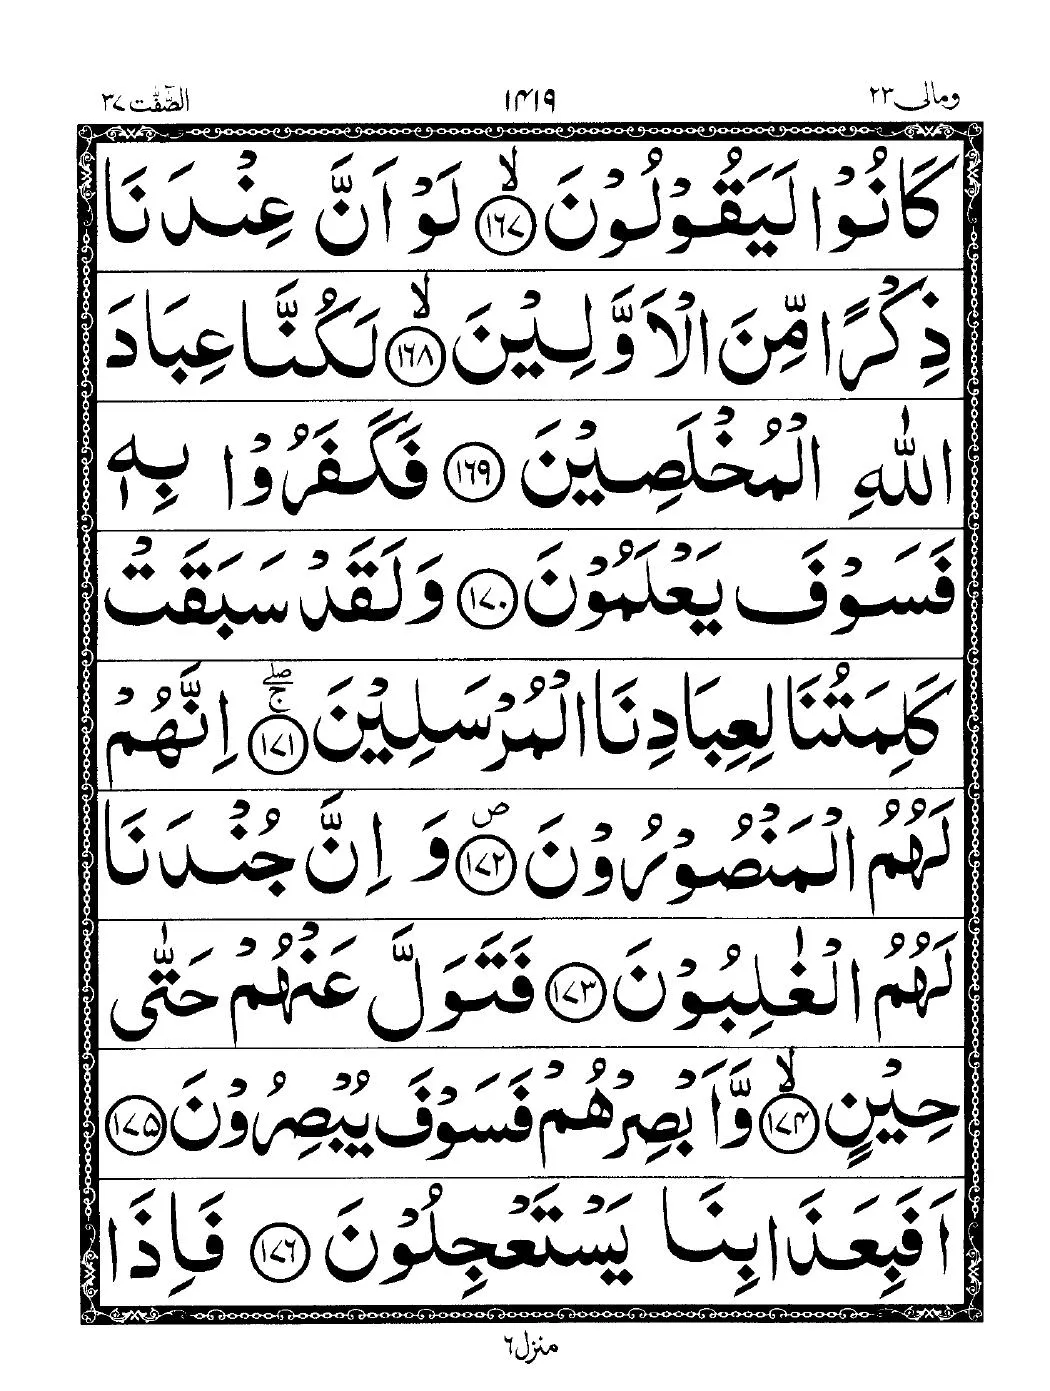 ومالی ۲۳ ۱۴۱۹ الصّٰٓفّٰت ۳۷
كَانُوْا لَيَقُوْلُوْنَ ۙ﴿۱۶۷﴾ لَوْ اَنَّ عِنْدَنَا
ذِكْرًا مِّنَ الْاَوَّلِيْنَ ۙ﴿۱۶۸﴾ لَكُنَّا عِبَادَ
اللّٰهِ الْمُخْلَصِيْنَ ﴿۱۶۹﴾ فَكَفَرُوْا بِهٖ
فَسَوْفَ يَعْلَمُوْنَ ﴿۱۷۰﴾ وَلَقَدْ سَبَقَتْ
كَلِمَتُنَا لِعِبَادِنَا الْمُرْسَلِيْنَ ۖۚ﴿۱۷۱﴾ اِنَّهُمْ
لَهُمُ الْمَنْصُوْرُوْنَ ۪﴿۱۷۲﴾ وَ اِنَّ جُنْدَنَا
لَهُمُ الْغٰلِبُوْنَ ﴿۱۷۳﴾ فَتَوَلَّ عَنْهُمْ حَتّٰى
حِيْنٍ ۙ﴿۱۷۴﴾ وَّاَبْصِرْهُمْ فَسَوْفَ يُبْصِرُوْنَ ﴿۱۷۵﴾
اَفَبِعَذَابِنَا يَسْتَعْجِلُوْنَ ﴿۱۷۶﴾ فَاِذَا
منزل ۶